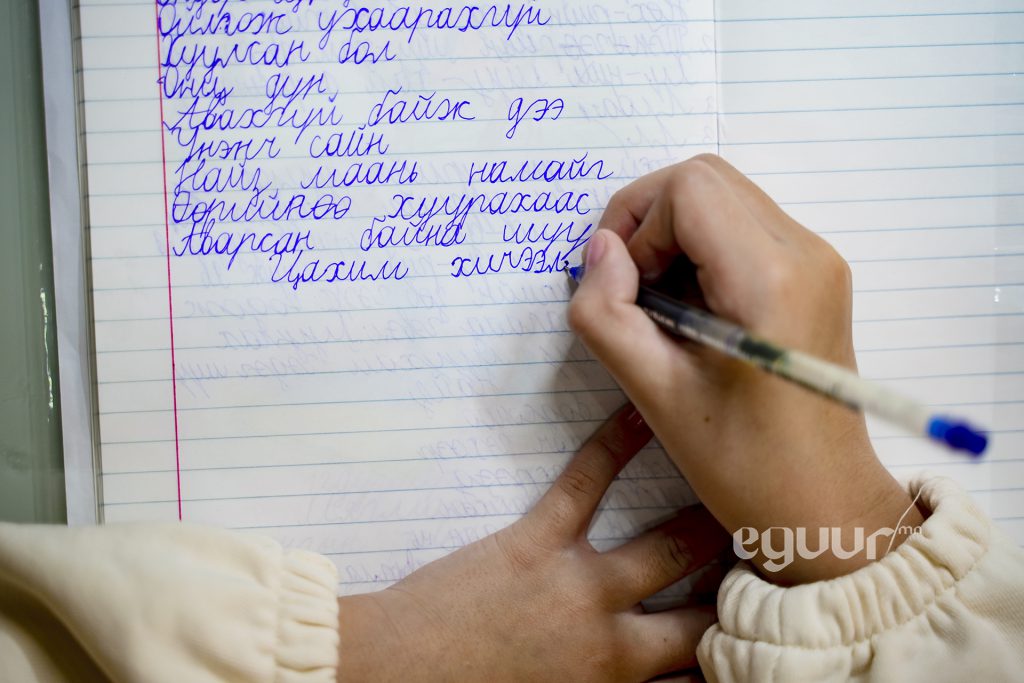 Ойлгож ухаарахгүй
Хуулсан бол
Онц дүн
Авахгүй байж дээ
Үнэнч сайн
Найз маань намайг
Өөрийнөө хуурахаас
Аварсан байна шүү
Цахим хичээл
eguur.mn